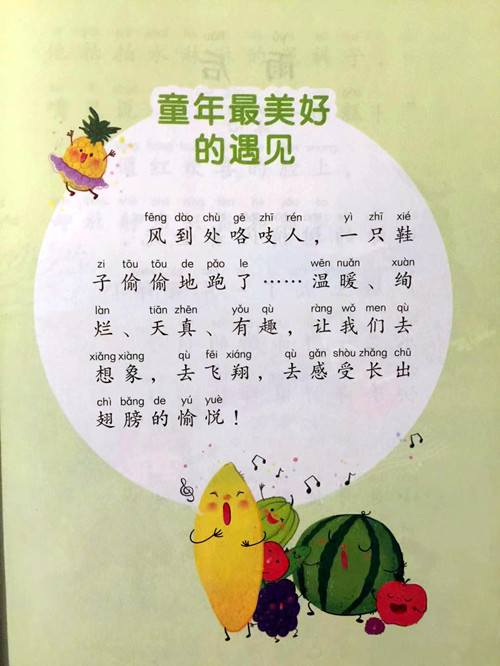 童年最美好
的遇见
fēng dào chù gē zhī rén yì zhī xié
风到处咯吱人，一只鞋
zi tōu tōu de pǎo le wēn nuǎn xuàn
子偷偷地跑了……温暖、绚
làn tiān zhēn yǒu qù ràng wǒ men qù
烂、天真、有趣，让我们去
xiǎng xiàng qù fēi xiáng qù gǎn shòu zhǎng chū
想象，去飞翔，去感受长出
chì bǎng de yú yuè
翅膀的愉悦！